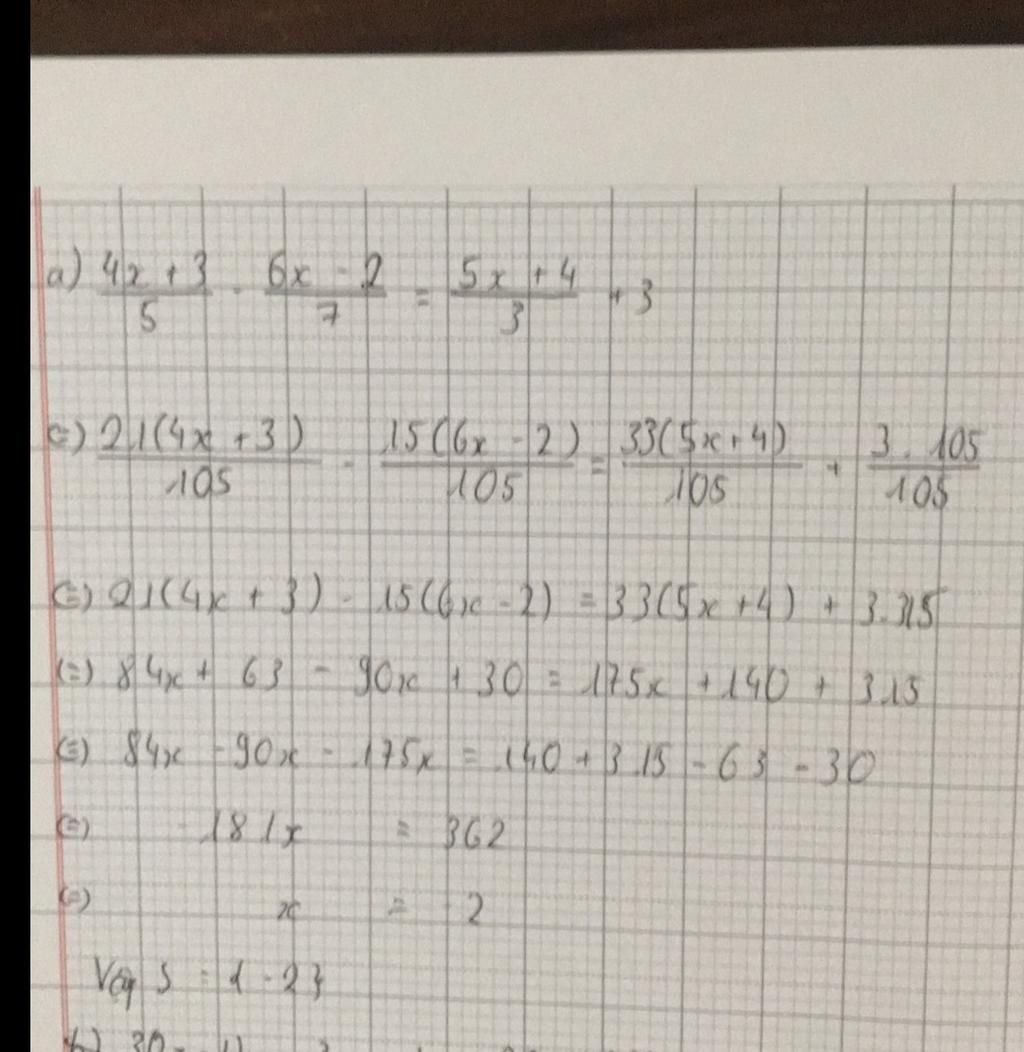 a) (4x + 3)/5 - (6x - 2)/7 = (5x + 4)/3 + 3
(=) 21(4x + 3)/105 - 15(6x - 2)/105 = 33(5x + 4)/105 + 3.105/105
(=) 21(4x + 3) - 15(6x - 2) = 33(5x + 4) + 3.315
(=) 84x + 63 - 90x + 30 = 175x + 140 + 315
(=) 84x - 90x - 175x = 140 + 315 - 63 - 30
(=) - 181x = 362
(=) x = - 2
Vậy S = { - 2}
b) 30